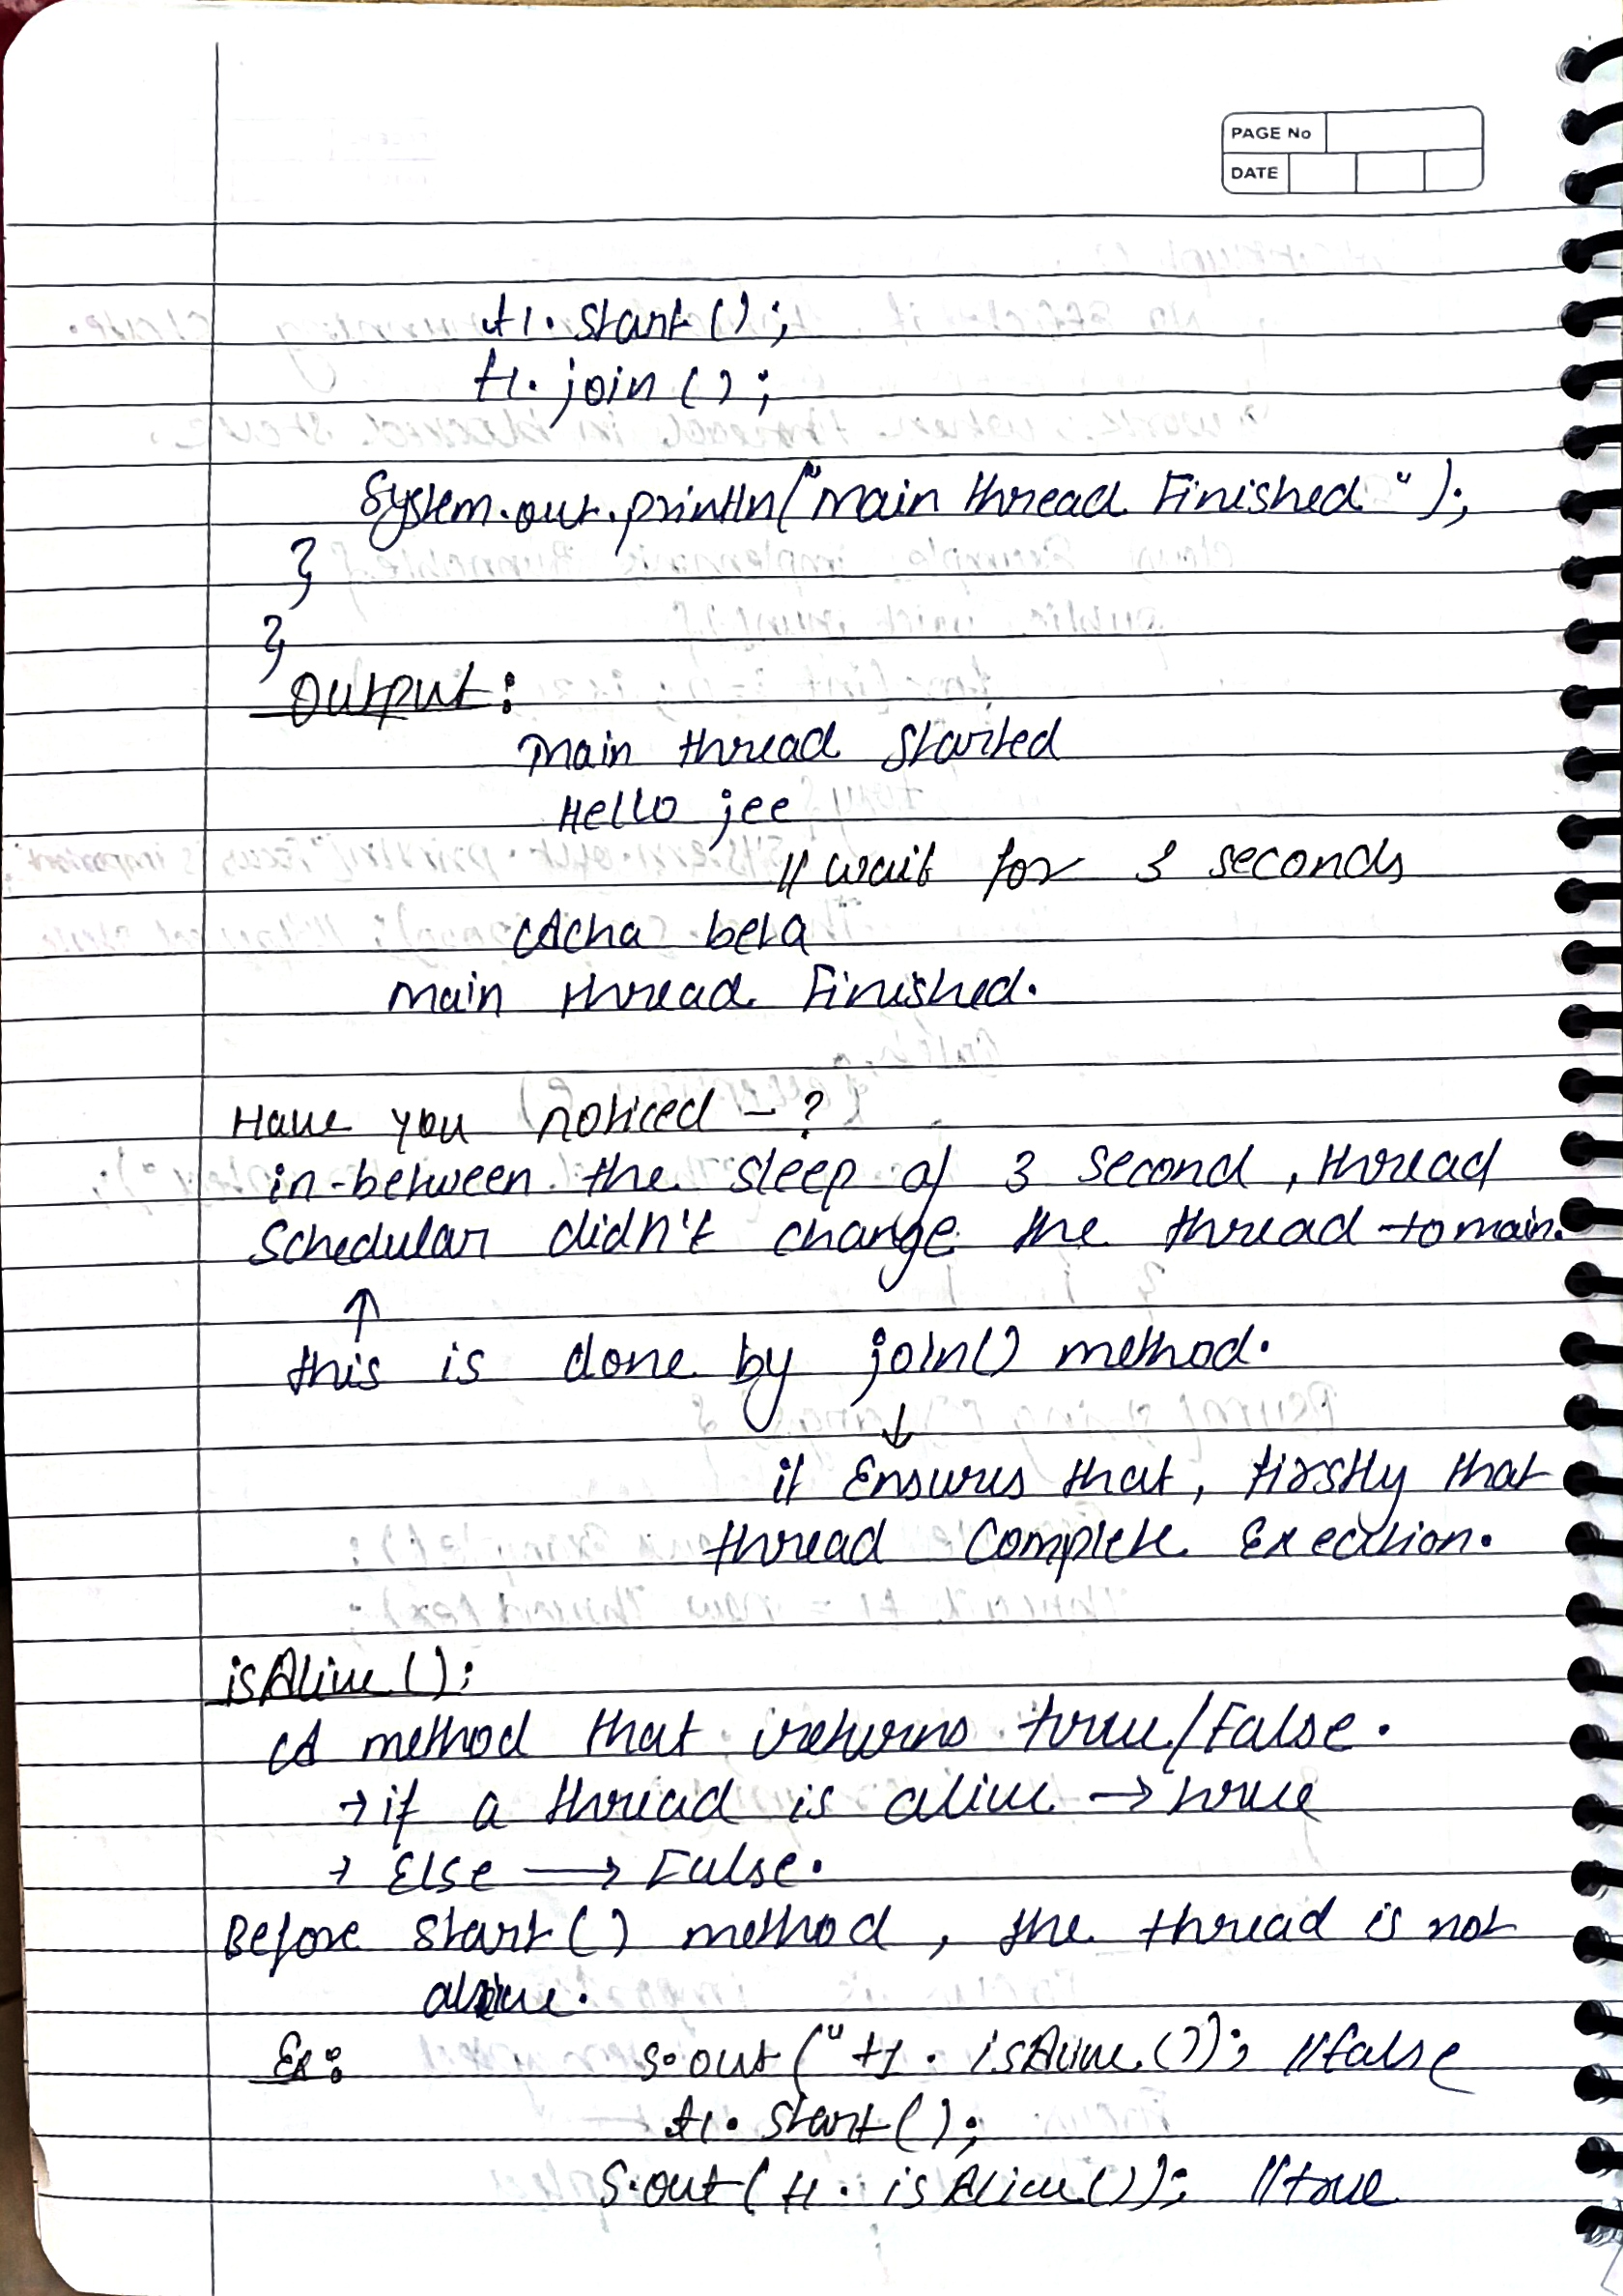 PAGE No
DATE
t1.start();
t1.join();
System.out.println("main thread Finished");
}
}
Output:
main thread started
Hello jee
// wait for 3 seconds
Acha beta
main thread Finished.
Have you noticed - ?
in-between the sleep of 3 second, thread
Schedular didn't change the thread to main.
↑
this is done by join() method.
↓
it Ensures that, firstly that
thread Complete Execution.
isAlive():
A method that returns true/False.
→ if a thread is alive → true
→ Else ⟶ False.
Before start() method, the thread is not
alive.
Ex: S.out("t1.isAlive()); //false
t1.start();
S.out(t1.isAlive()); //true